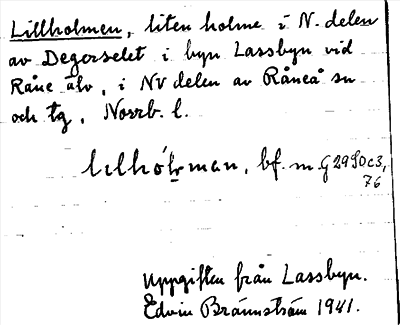 Lillholmen, liten holme i N. delen
av Degerselet i byn Lassbyn vid
Råne älv, i NV delen av Råneå sn
och tg, Norrb. l.
bf. m. G 29
76
Uppgiften från Lassbyn.
Edvin Brännström 1941.